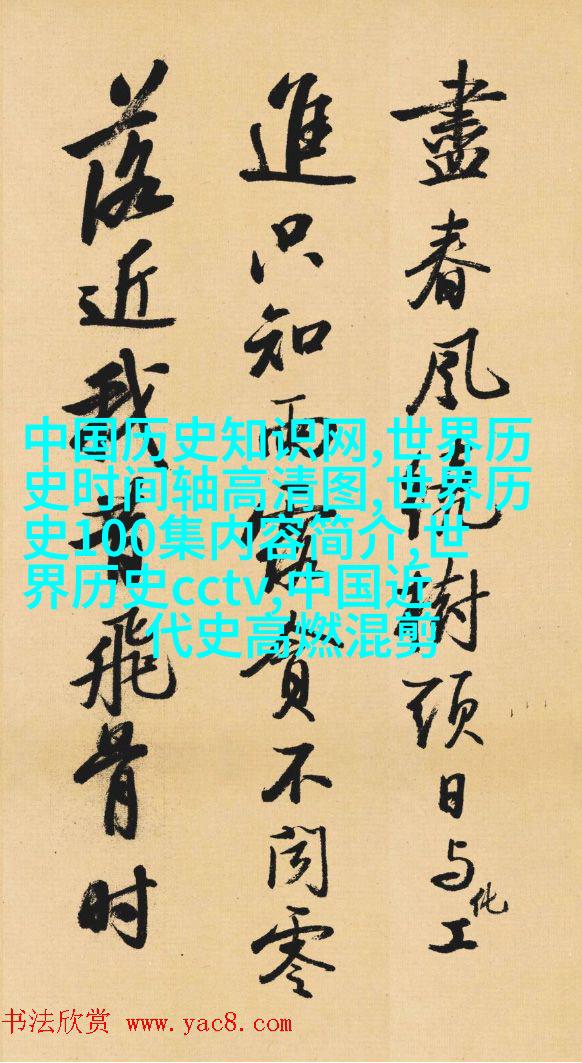 盡春風繞樹頭日与化工
進只知雨露貪不聞零
落近我昔飛骨時
中国历史知识网,世界历
史时间轴高清图,世界历
史100集内容简介,世
界历史cctv,中国近
代史高燃混剪
书法欣赏 www.yac8.com